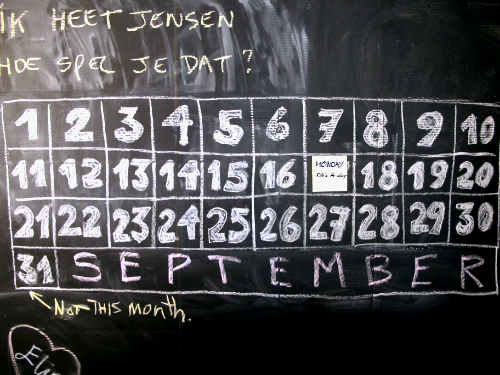 IK HEET JENSEN
HOE SPEL JE DAT?
1 2 3 4 5 6 7 8 9 10
11 12 13 14 15 16 MONDAY 18 19 20
21 22 23 24 25 26 27 28 29 30
31 SEPTEMBER
NOT THIS MONTH.